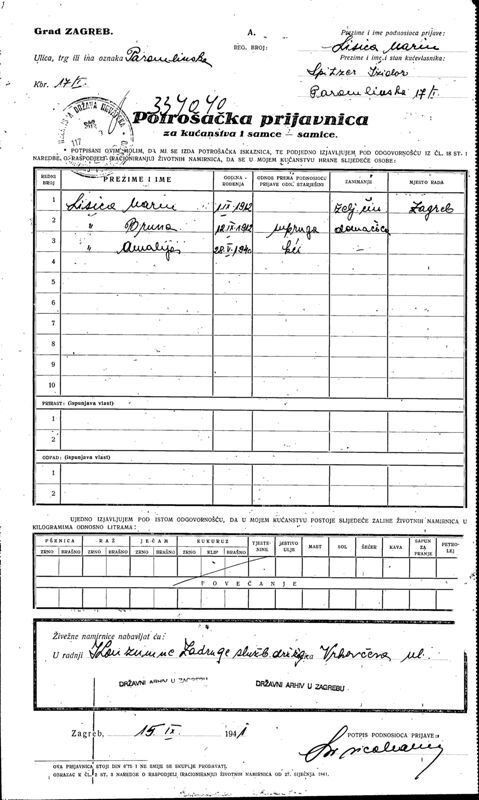 Grad ZAGREB.
A.
REG. BROJ:
Prezime i ime podnosioca prijave:
Lisica Marin
Ulica, trg ili ina oznaka Paromlinska
Prezime i ime i stan kućevlasnika:
Spitzer Izidor
Kbr. 17/I
Paromlinska 17/I.
334040
Potrošačka prijavnica
za kućanstva i samce — samice.
POTPISANI OVIM MOLIM, DA MI SE IZDA POTROŠAČKA ISKAZNICA, TE PODJEDNO IZJAVLJUJEM POD ODGOVORNOŠĆU IZ ČL. 18 ST. 1
NAREDBE O RASPODJELI (RACIONIRANJU) ŽIVOTNIH NAMIRNICA, DA SE U MOJEM KUĆANSTVU HRANE SLIJEDEĆE OSOBE:
REDNI BROJ
PREZIME I IME
GODINA ROĐENJA
ODNOS PREMA PODNOSIOCU PRIJAVE ODN. STARJEŠINI
ZANIMANJE
MJESTO RADA
1 Lisica Marin 1912 Zagreb
2 " Bruna 1912 supruga domaćica
3 " Amalija 28.V.1940 kći
4
5
6
7
8
9
10
PRIRAST: (ispunjava vlast)
1
2
ODPAD: (ispunjava vlast)
1
2
UJEDNO IZJAVLJUJEM POD ISTOM ODGOVORNOŠĆU, DA U MOJEM KUĆANSTVU POSTOJE SLIJEDEĆE ZALIHE ŽIVOTNIH NAMIRNICA U
KILOGRAMIMA ODNOSNO LITRAMA:
PŠENICA RAŽ JEČAM KUKURUZ TJESTENINE JESTIVO ULJE MAST SOL ŠEĆER KAVA SAPUN ZA PRANJE PETROLEJ
ZRNO BRAŠNO ZRNO BRAŠNO ZRNO BRAŠNO ZRNO KLIP BRAŠNO
POVEĆANJE
Živežne namirnice nabavljat ću:
U radnji Zadruge služb. Vrhovčeva ul.
DRŽAVNI ARHIV U ZAGREBU
DRŽAVNI ARHIV U ZAGREBU
Zagreb, 15 IX. 1941
POTPIS PODNOSIOCA PRIJAVE:
OVA PRIJAVNICA STOJI DIN 0'75 I NE SMIJE SE SKUPLJE PRODAVATI.
OBRAZAC K ČL. 2 ST. 3 NAREDBE O RASPODJELI (RACIONIRANJU) ŽIVOTNIH NAMIRNICA OD 27. SIJEČNJA 1941.